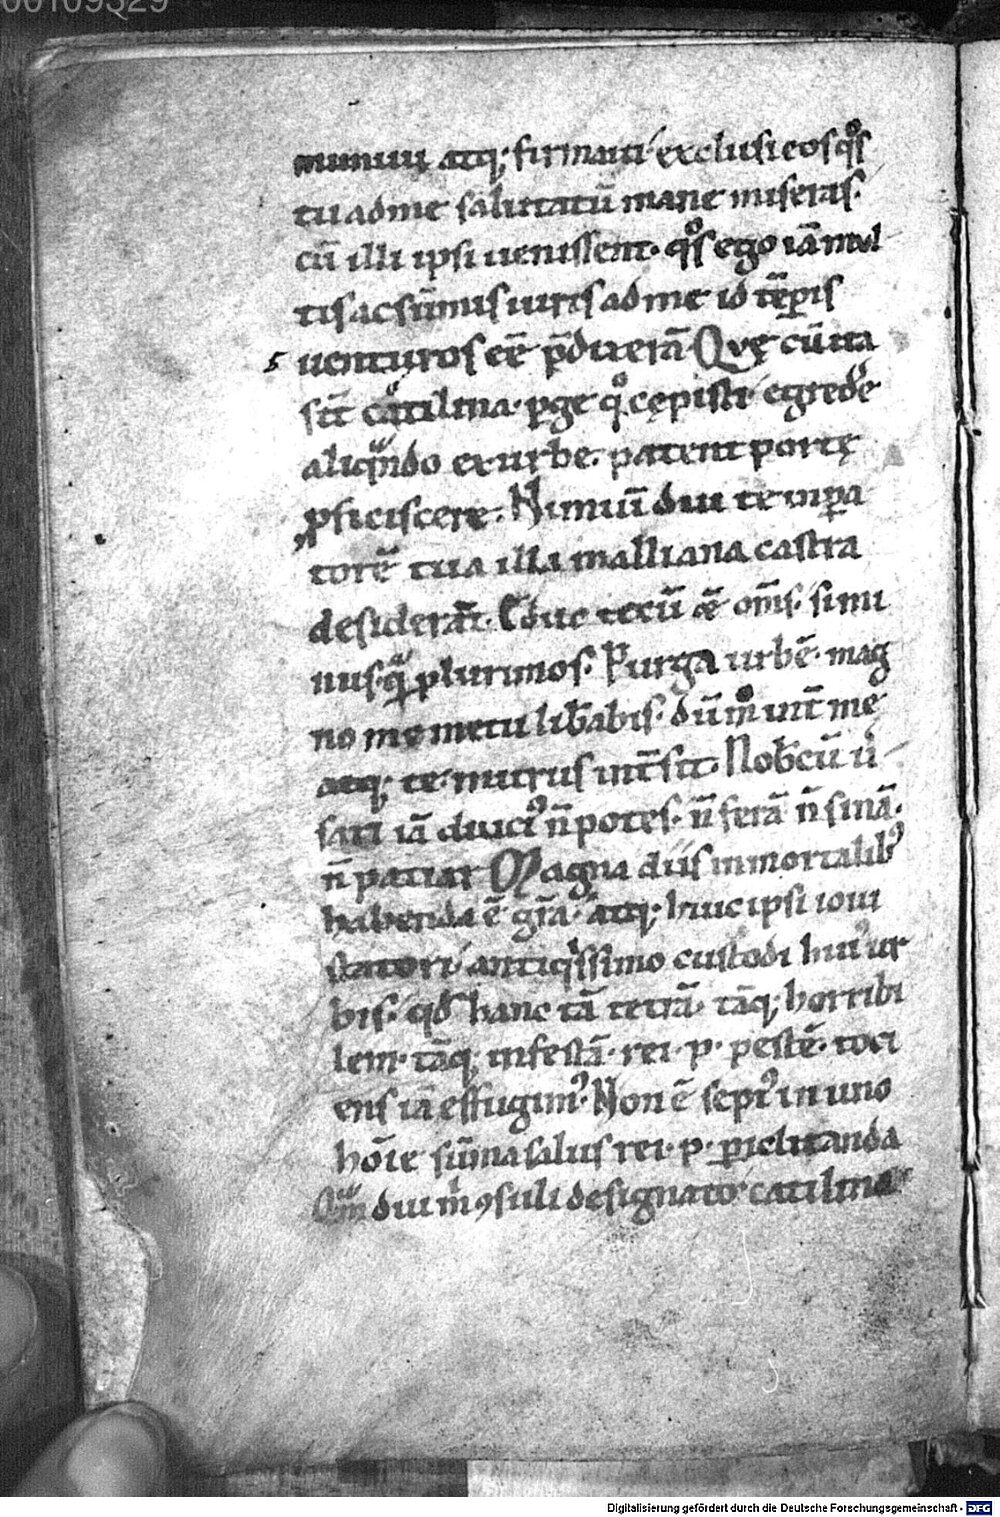 00109329
muniui atq; firmaui· exclusi eos qͦs
tu ad me salutatū mane miseras·
cū illi ipsi uenissent· qͦs ego iā mul
tis ac sūmis uiris ad me id tēꝑis
5 uenturos eē p̄dixerā Quę cū ita
sīt catilina· ꝑge qͦ cępisti· egredẽ
aliqͣndo ex urbe· patent portę
ꝓficiscere· Nimiū diu te inꝑa
torē tua illa malliana castra
desiderāt· Educ tecū &ē om̄s· si mi
nus· qͣ̄ plurimos· Purga urbē· mag
no me metu lib̄abis· dūm̊ int̄ me
atq; te· murus int̄sit· Nob̄cū u̾
sari iā diuciꝰ n̄ potes· n̄ ferā n̄ sinā·
n̄ patiar Magna diis inmortalibꝰ
habenda ē gr̄a· atq; huic ipsi ioui
statori· antiqͥssimo custodi huiꝰ ur
bis· qđ hanc tā tetrā· tāq; horribi
lem· tāq; infestā· rei· p· pestē· toci
ens iā effugimꝰ· Non ē sepiꝰ in uno
hōie sūma salus rei· p· ꝑiclitanda
Qͣm diu m̍ ꝯsuli designato· catilina
Digitalisierung gefördert durch die Deutsche Forschungsgemeinschaft - DFG